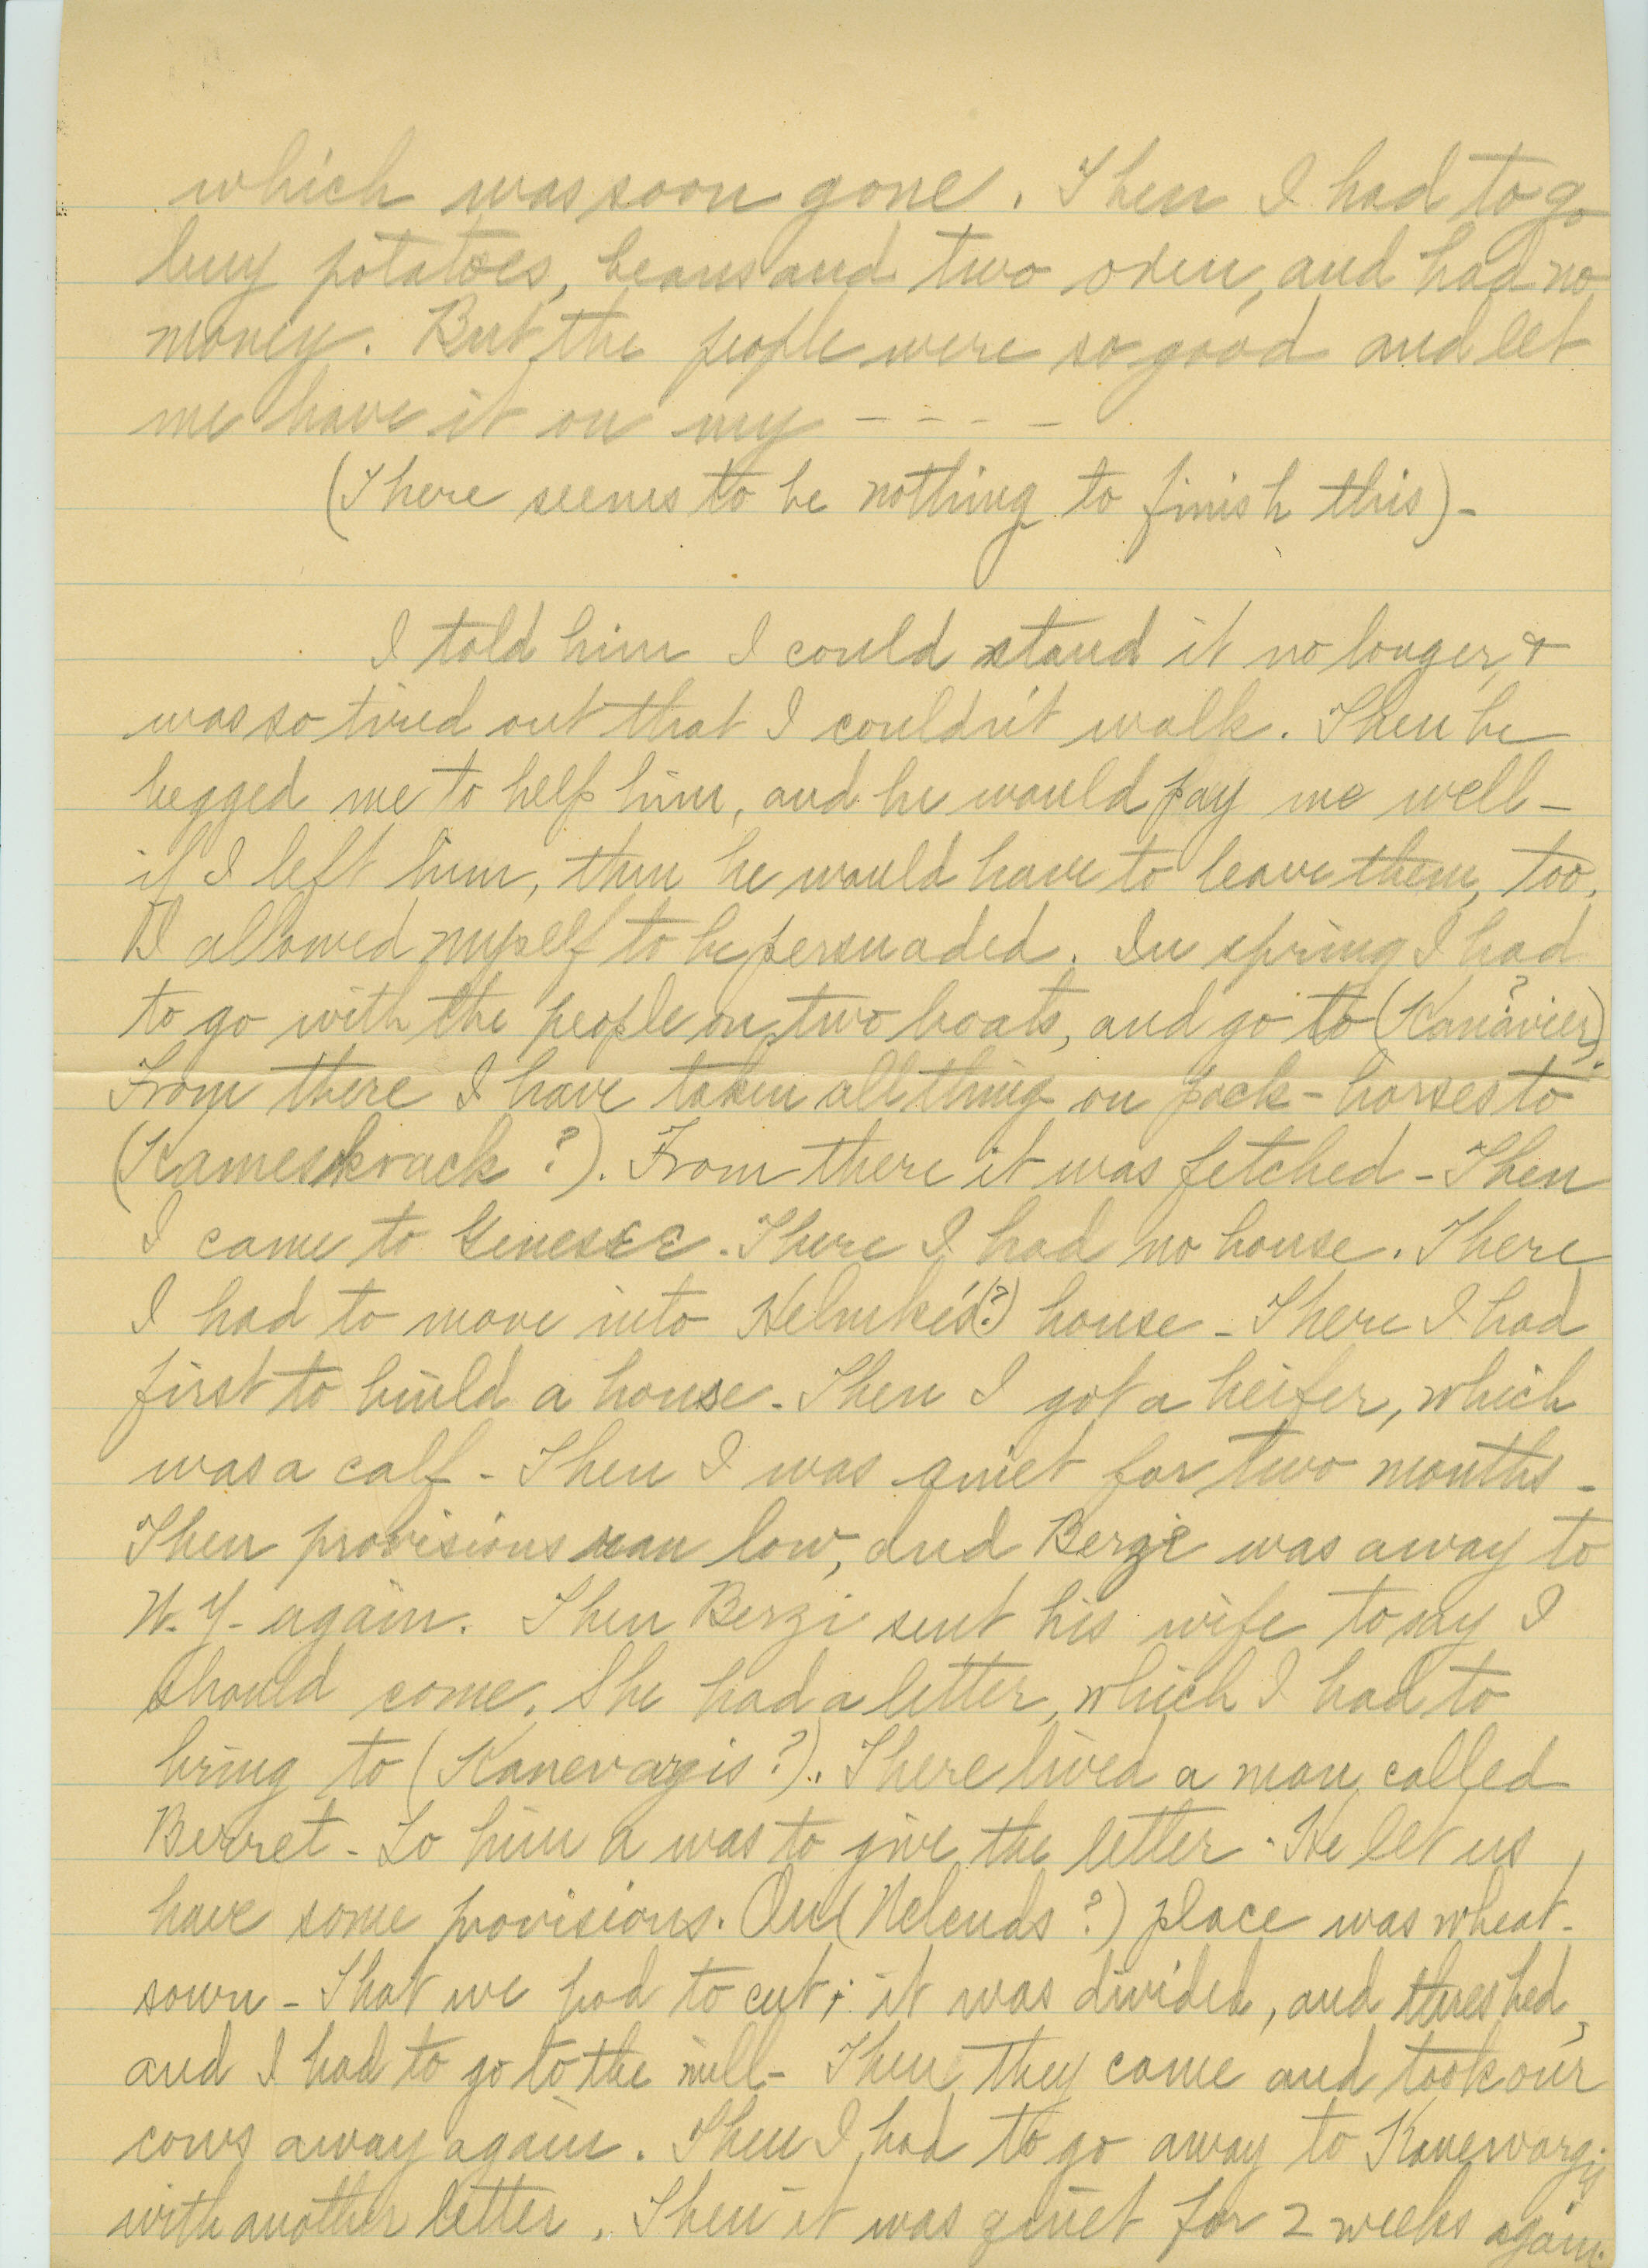 which was soon gone. Then I had to go
buy potatoes, beans and two oxen, and had no
money. But the people were so good and let
me have it on my - - - -
(There seems to be nothing to finish this)-
I told him I could stand it no longer, &
was so tired out that I couldn't walk. Then he
begged me to help him, and he would pay me well-
if I left him, then he would have to leave them, too.
I allowed myself to be persuaded. In spring I had
to go with the people on two boats, and go to (Kanavier?).
From there I have taken all thing on pack-horses to
(Kameskrack ?). From there it was fetched - Then
I came to Genesee. There I had no house. There
I had to move into Helmke's(?) house - There I had
first to build a house. Then I got a heifer, which
was a calf - Then I was quiet for two months -
Then provisions ran low, and Berzi was away to
N. Y. again. Then Berzi sent his wife to say I
should come. She had a letter, which I had to
bring to (Kanevargis ?). There lived a man called
Berret - To him a was to give the letter - He let us
have some provisions. On (Nelends ?) place was wheat
sown - That we had to cut; it was divided, and threshed,
and I had to go to the mill - Then they came and took our
cows away again. Then I had to go away to Kanewargis
with another letter. Then it was quiet for 2 weeks again.